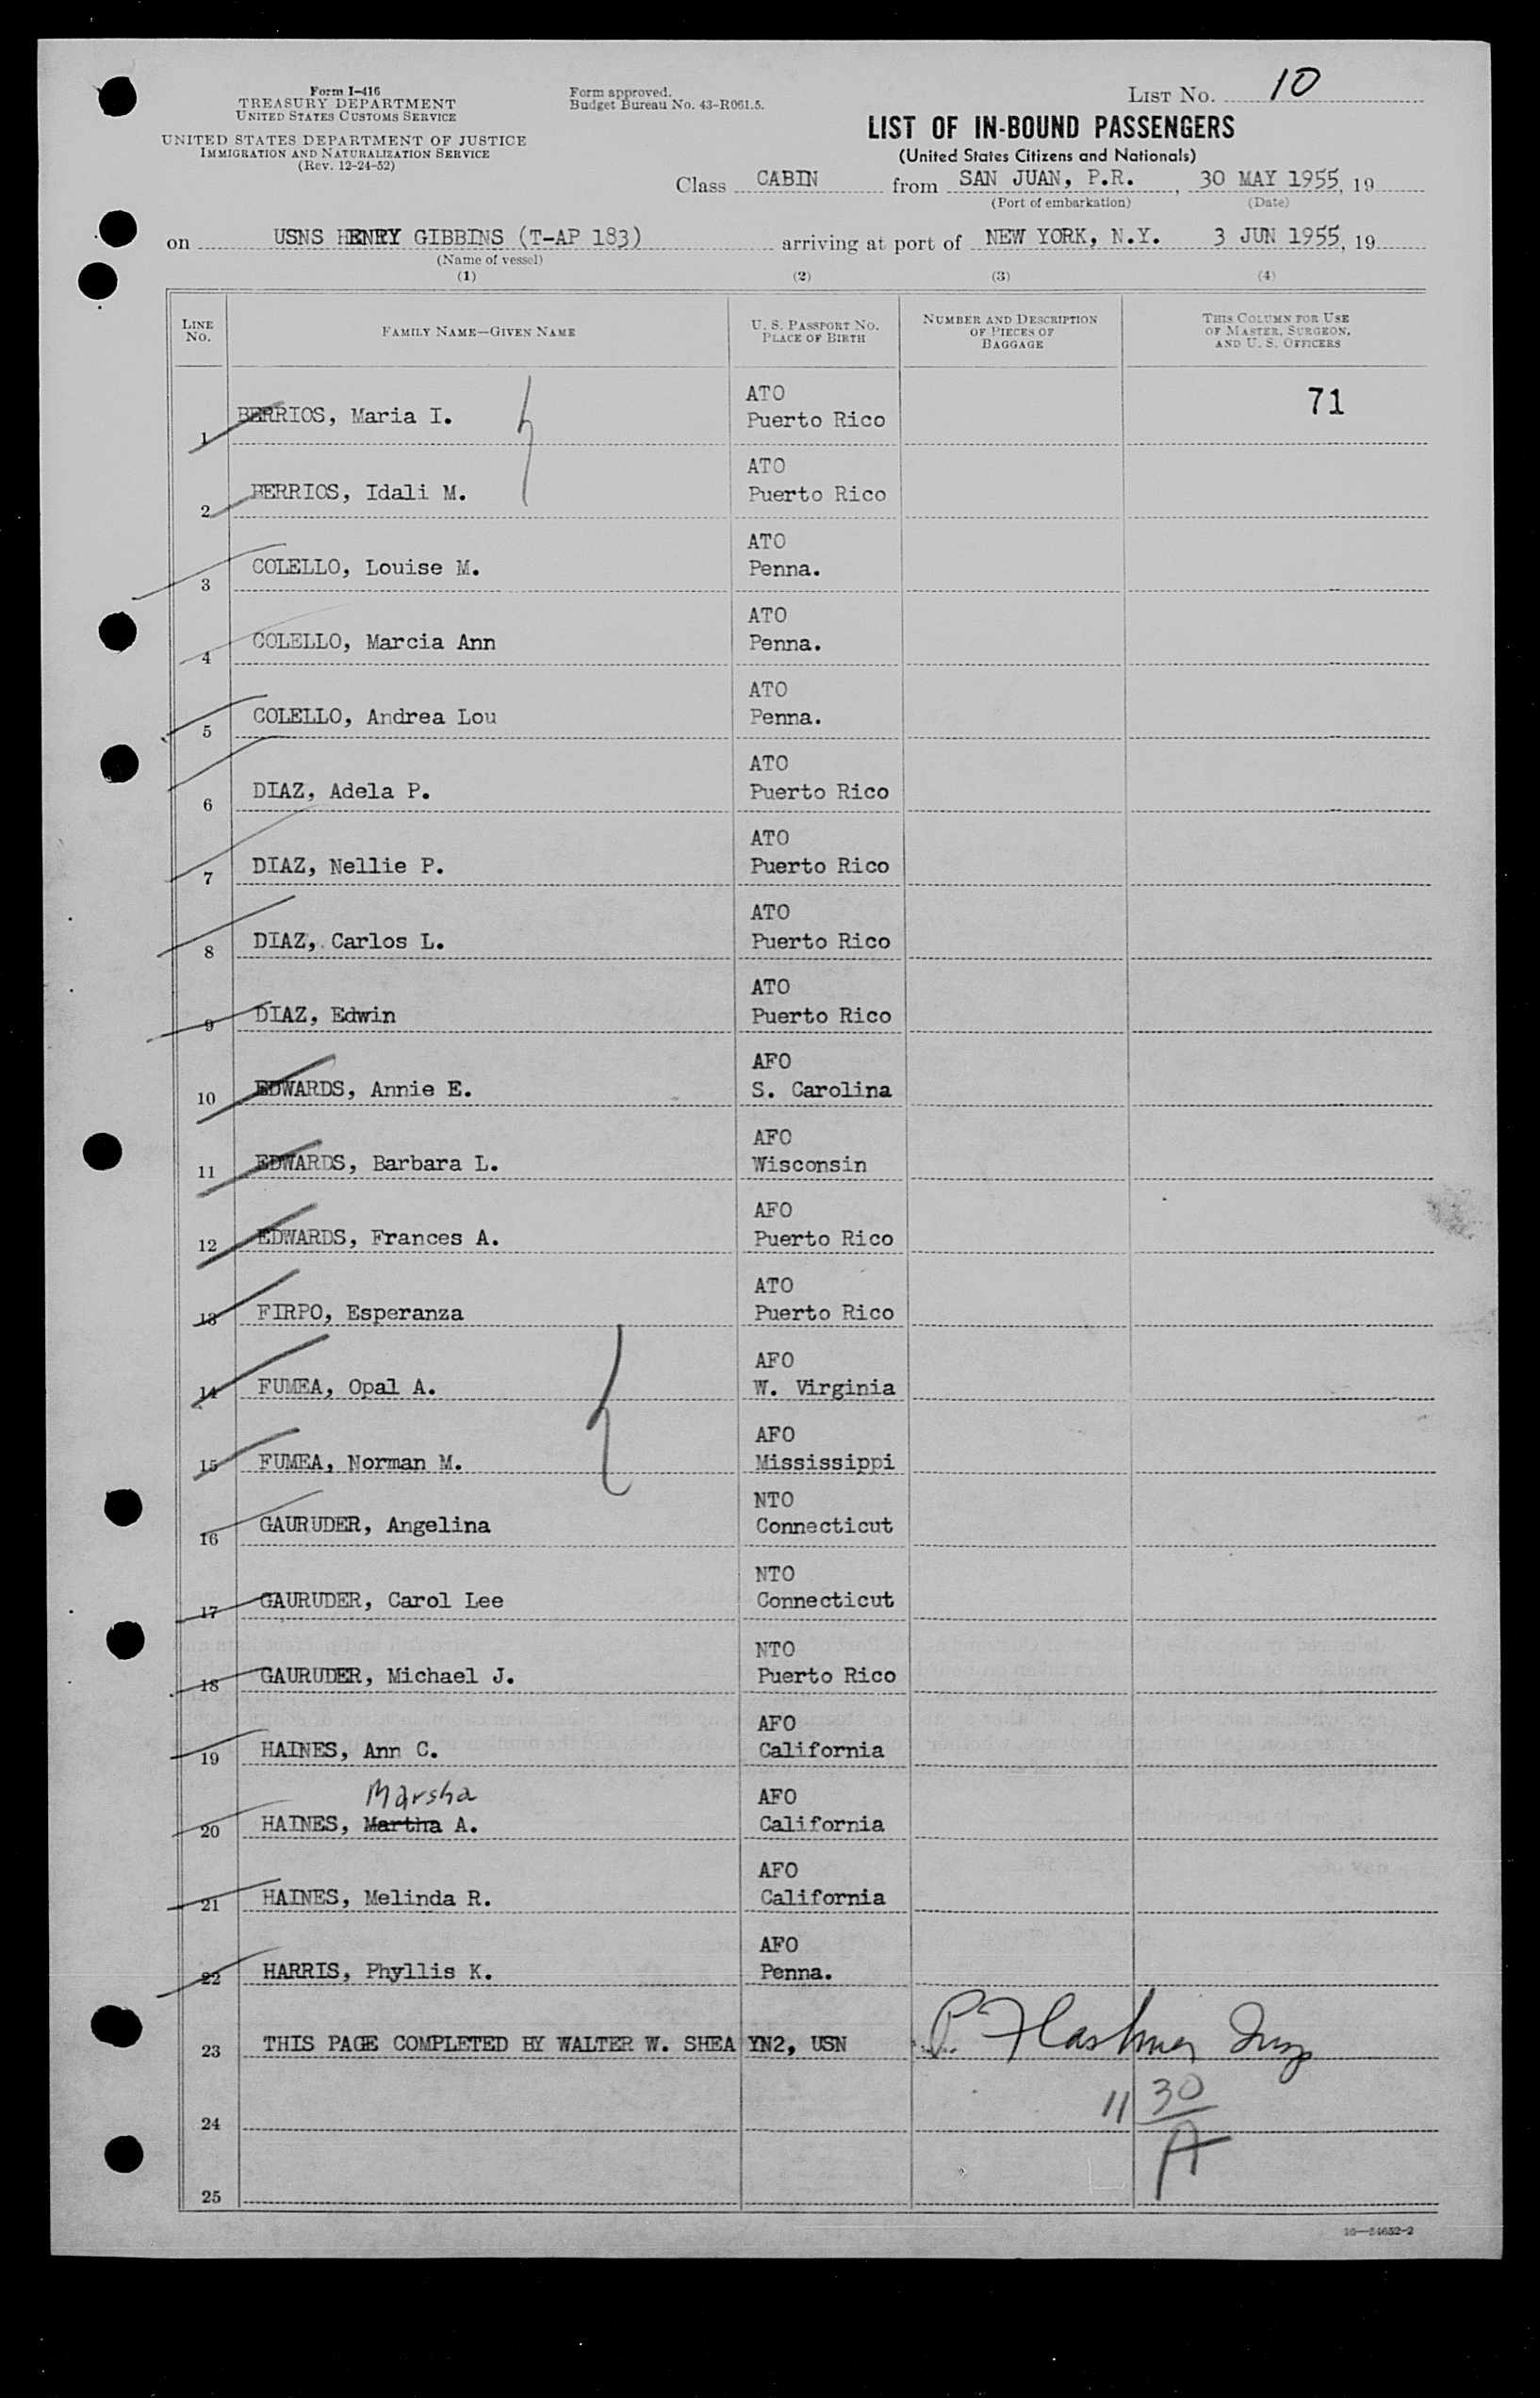 Form I-416
TREASURY DEPARTMENT
UNITED STATES CUSTOMS SERVICE
UNITED STATES DEPARTMENT OF JUSTICE
IMMIGRATION AND NATURALIZATION SERVICE
(Rev. 12-24-52)
Form approved.
Budget Bureau No. 43-R061.5.
LIST NO. 10
LIST OF IN-BOUND PASSENGERS
(United States Citizens and Nationals)
Class CABIN from SAN JUAN, P.R., 30 MAY 1955, 19
(Port of embarkation) (Date)
on USNS HENRY GIBBINS (T-AP 183) arriving at port of NEW YORK, N.Y. 3 JUN 1955, 19
(Name of vessel)
(1) (2) (3) (4)
LINE NO. FAMILY NAME—GIVEN NAME U. S. PASSPORT NO. PLACE OF BIRTH NUMBER AND DESCRIPTION OF PIECES OF BAGGAGE THIS COLUMN FOR USE OF MASTER, SURGEON, AND U. S. OFFICERS
ATO 71
1 BERRIOS, Maria I. Puerto Rico
ATO
2 BERRIOS, Idali M. Puerto Rico
ATO
3 COLELLO, Louise M. Penna.
ATO
4 COLELLO, Marcia Ann Penna.
ATO
5 COLELLO, Andrea Lou Penna.
ATO
6 DIAZ, Adela P. Puerto Rico
ATO
7 DIAZ, Nellie P. Puerto Rico
ATO
8 DIAZ, Carlos L. Puerto Rico
ATO
9 DIAZ, Edwin Puerto Rico
AFO
10 EDWARDS, Annie E. S. Carolina
AFO
11 EDWARDS, Barbara L. Wisconsin
AFO
12 EDWARDS, Frances A. Puerto Rico
ATO
13 FIRPO, Esperanza Puerto Rico
AFO
14 FUMEA, Opal A. W. Virginia
AFO
15 FUMEA, Norman M. Mississippi
NTO
16 GAURUDER, Angelina Connecticut
NTO
17 GAURUDER, Carol Lee Connecticut
NTO
18 GAURUDER, Michael J. Puerto Rico
AFO
19 HAINES, Ann C. California
Marsha AFO
20 HAINES, Martha A. California
AFO
21 HAINES, Melinda R. California
AFO
22 HARRIS, Phyllis K. Penna.
23 THIS PAGE COMPLETED BY WALTER W. SHEA YN2, USN P.
11 30
24
A
25
16—54652-2